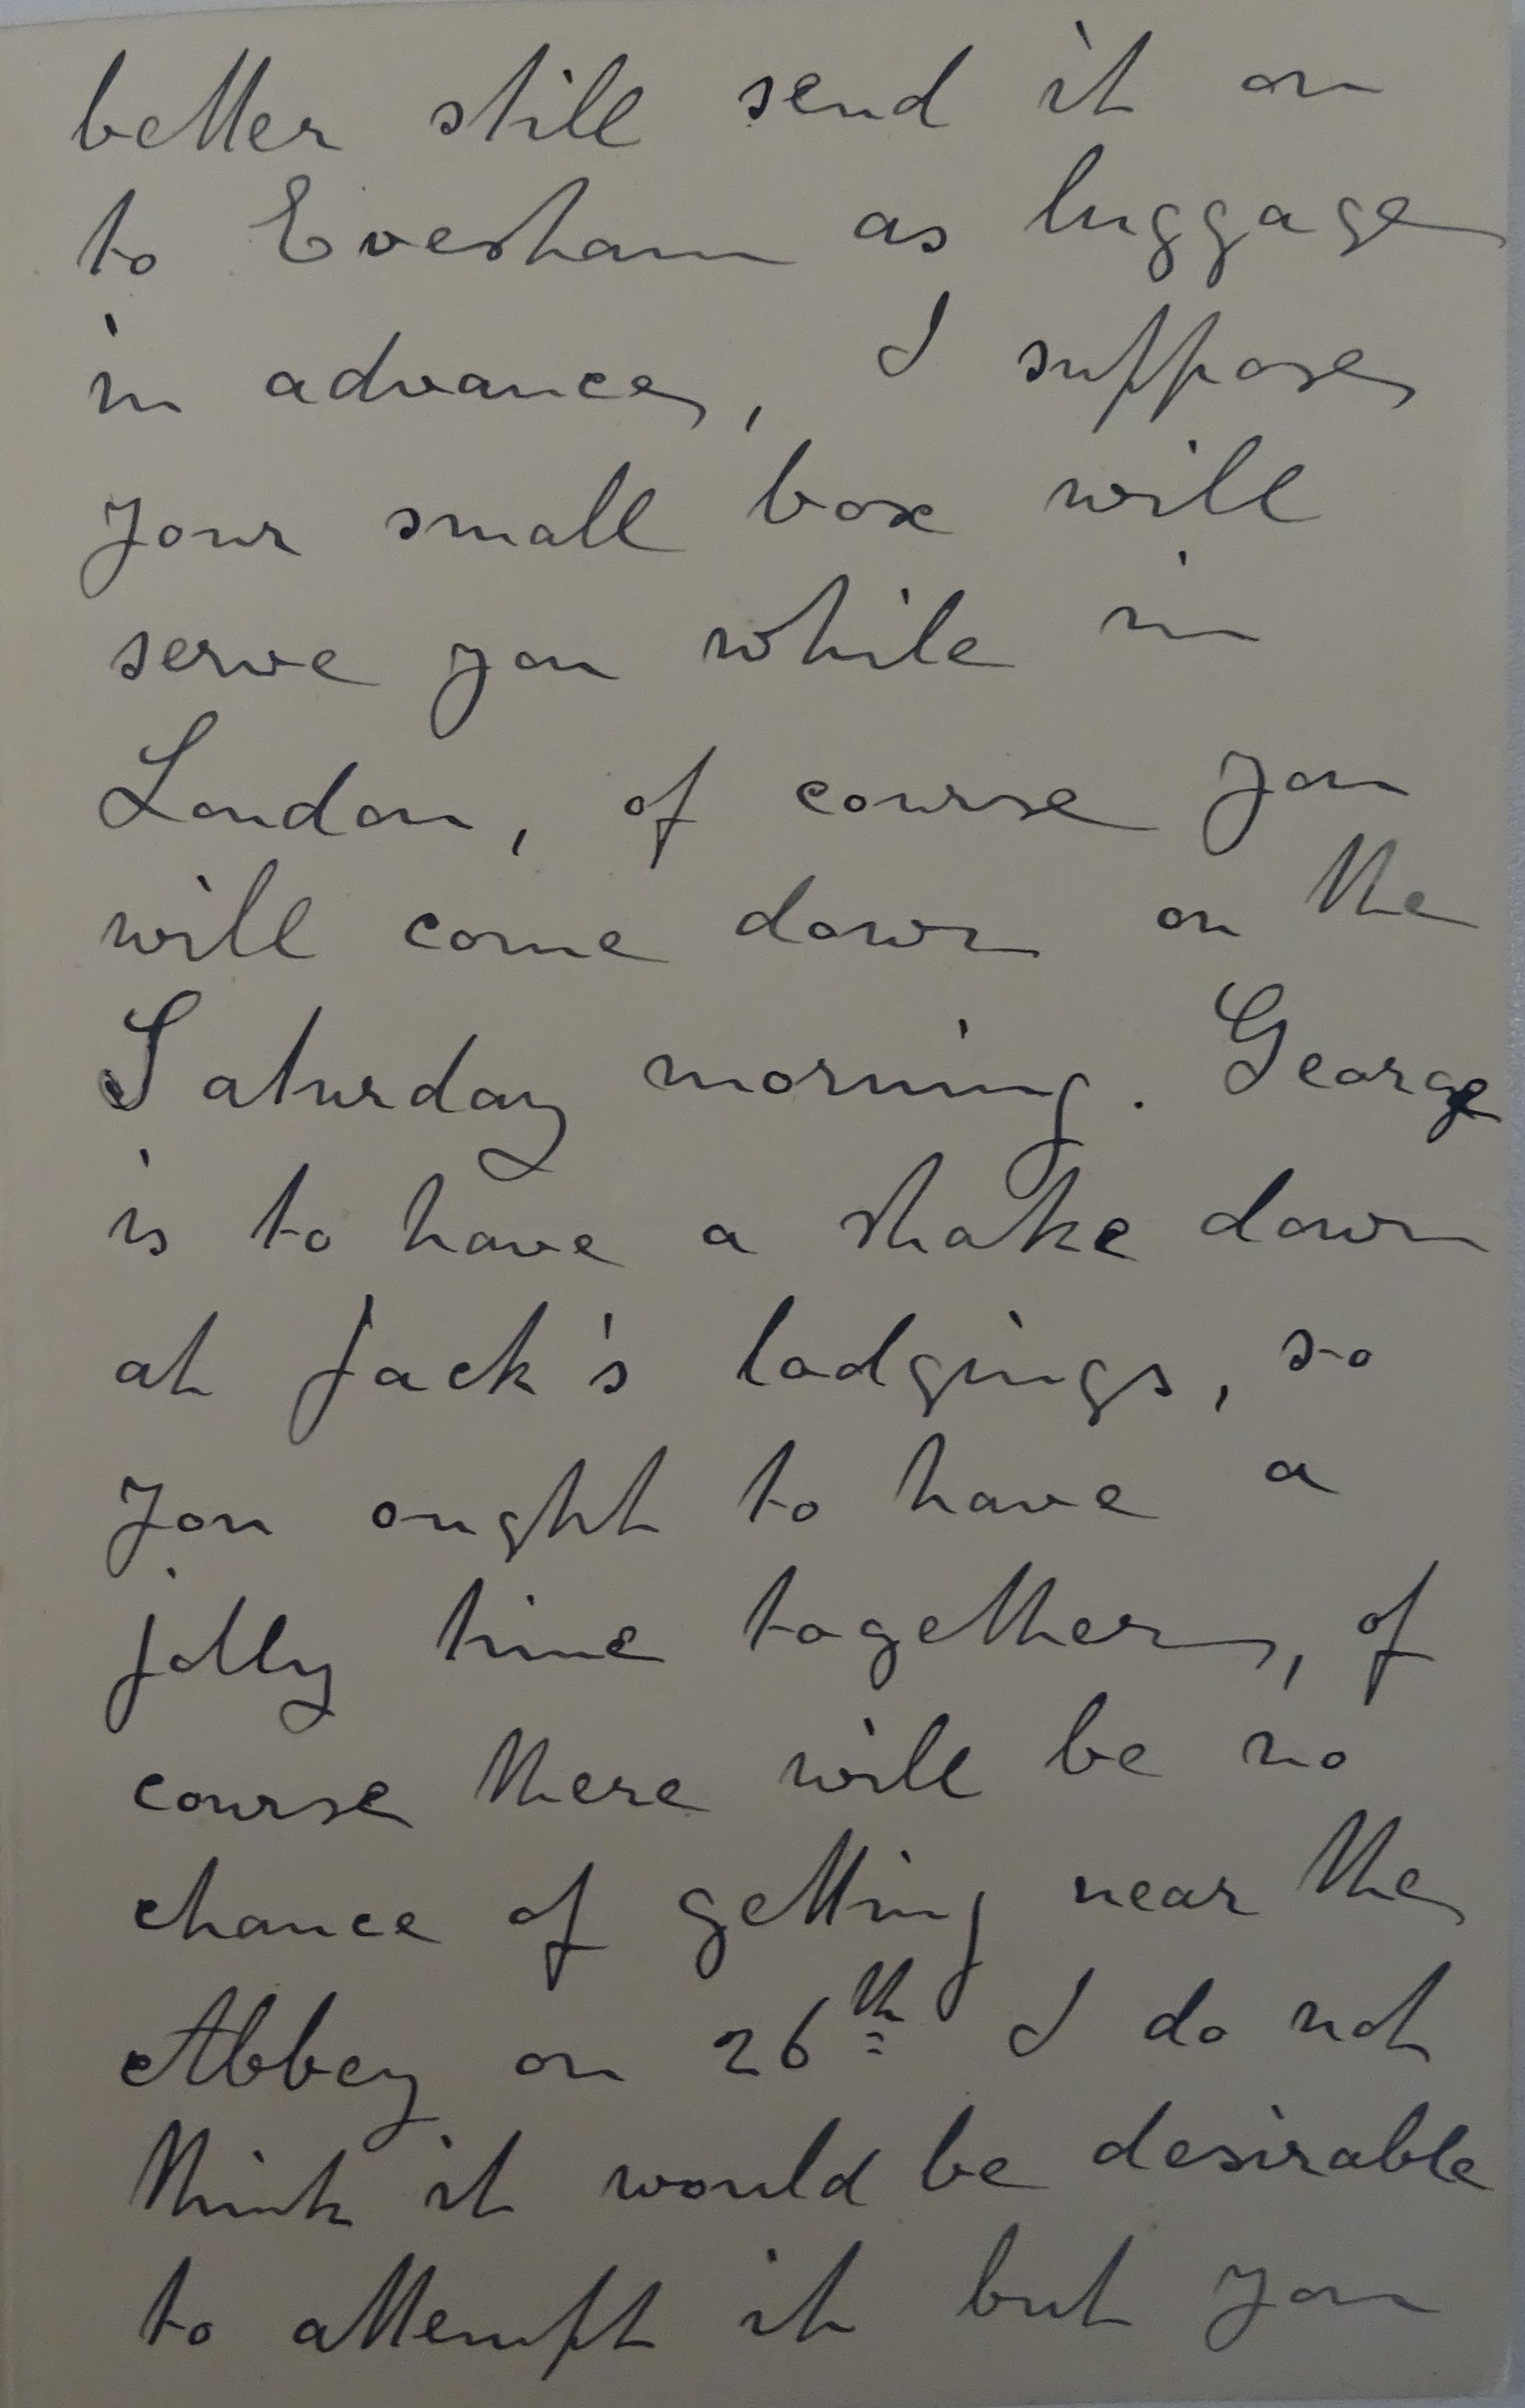 better still send it on
to Evesham as luggage
in advance, I suppose
your small box will
serve you while in
London, of course you
will come down on the
Saturday morning. George
is to have a shake down
at Jack's lodgings, so
you ought to have a
jolly time together, of
course there will be no
chance of getting near the
Abbey on 26th I do not
think it would be desirable
to attempt it but you